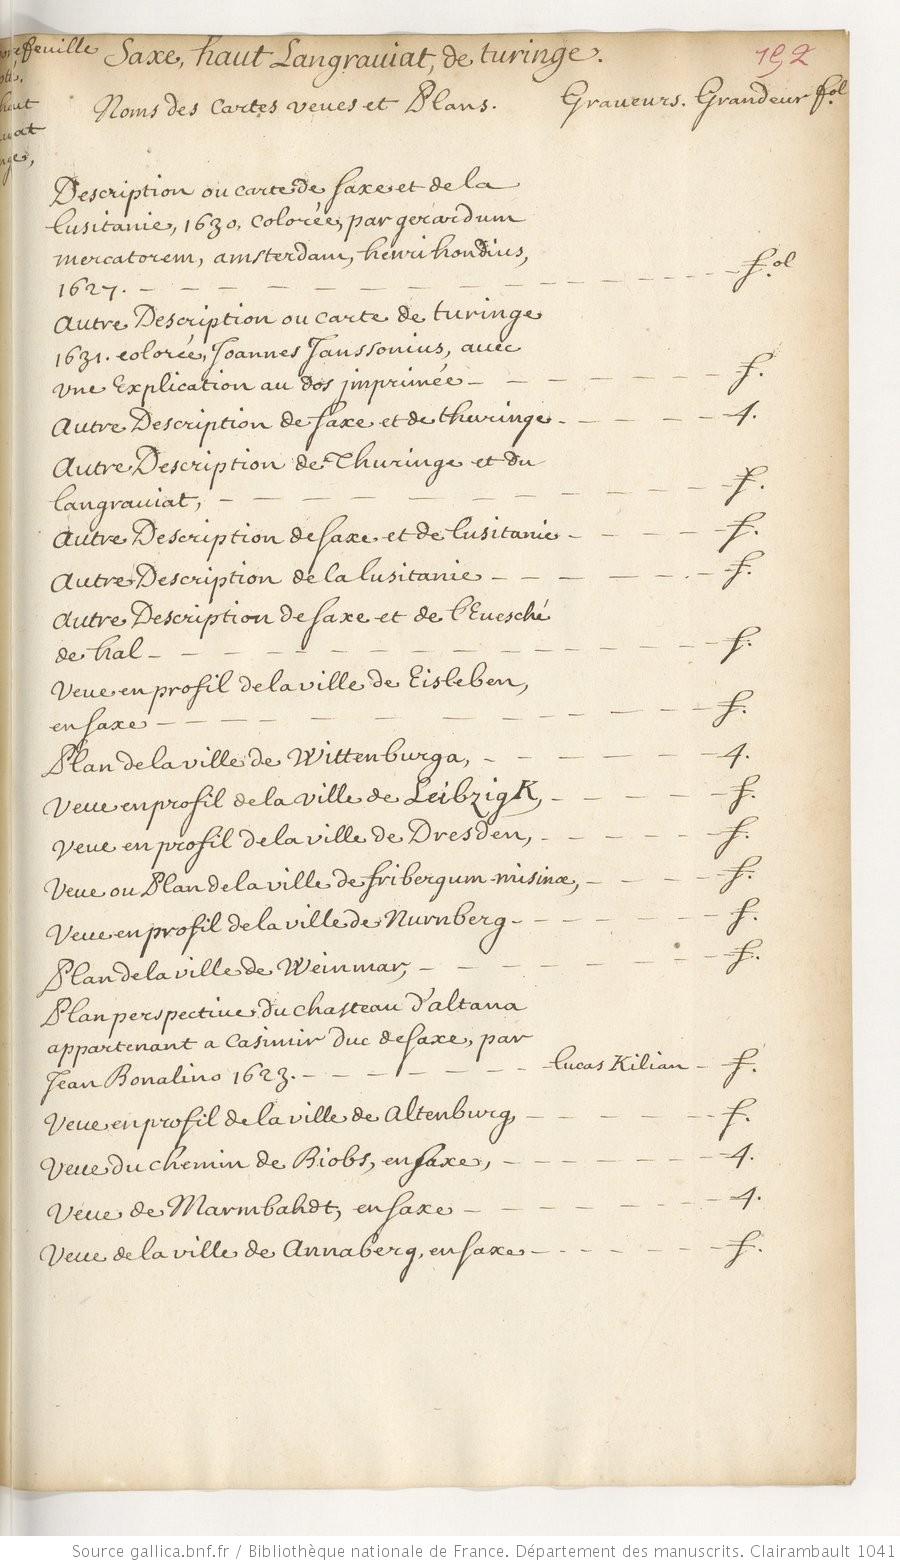 Saxe, haut Langraviat, de turinge.
192
Noms des Cartes veues et Plans. Graveurs. Grandeur fol
Description ou carte de saxe et de la
lusitanie, 1630. colorée, par gerardum
mercatorem, amsterdam, henri hondius,
1627. fol
Autre Description ou carte de turinge
1631. colorée, Joannes Janssonius, avec
vne Explication au dos jmprimée f.
Autre Description de saxe et de thuringe 4.
Autre Description de Thuringe et du
langraviat, f.
Autre Description de saxe et de lusitanie f.
Autre Description de la lusitanie f.
Autre Description de saxe et de l'Evesché
de hal f.
Veue en profil de la ville de Eisleben,
en saxe f.
Plan de la ville de Wittenburga, 4.
Veue en profil de la ville de Leibzigk, f.
Veue en profil de la ville de Dresden, f.
Veue ou Plan de la ville de fribergum misinæ, f.
Veue en profil de la ville de Nurnberg f.
Plan de la ville de Weinmar, f.
Plan perspective du chasteau d'altana
appartenant a Casimir duc de saxe, par
Jean Bonalino 1623. lucas Kilian f.
Veue en profil de la ville de Altenburg, f.
Veue du chemin de Biobs, en saxe, 4.
Veue de Marmbahdt, en saxe 4.
Veue de la ville de Annaberg, en saxe f.
Source gallica.bnf.fr / Bibliothèque nationale de France. Département des manuscrits. Clairambault 1041